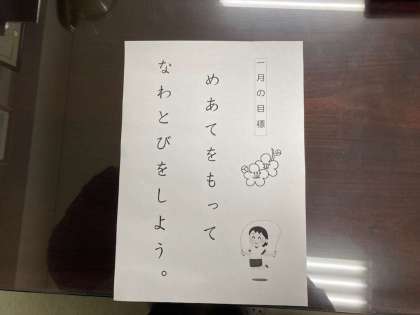 一月の目標
めあてをもって
なわとびをしよう。